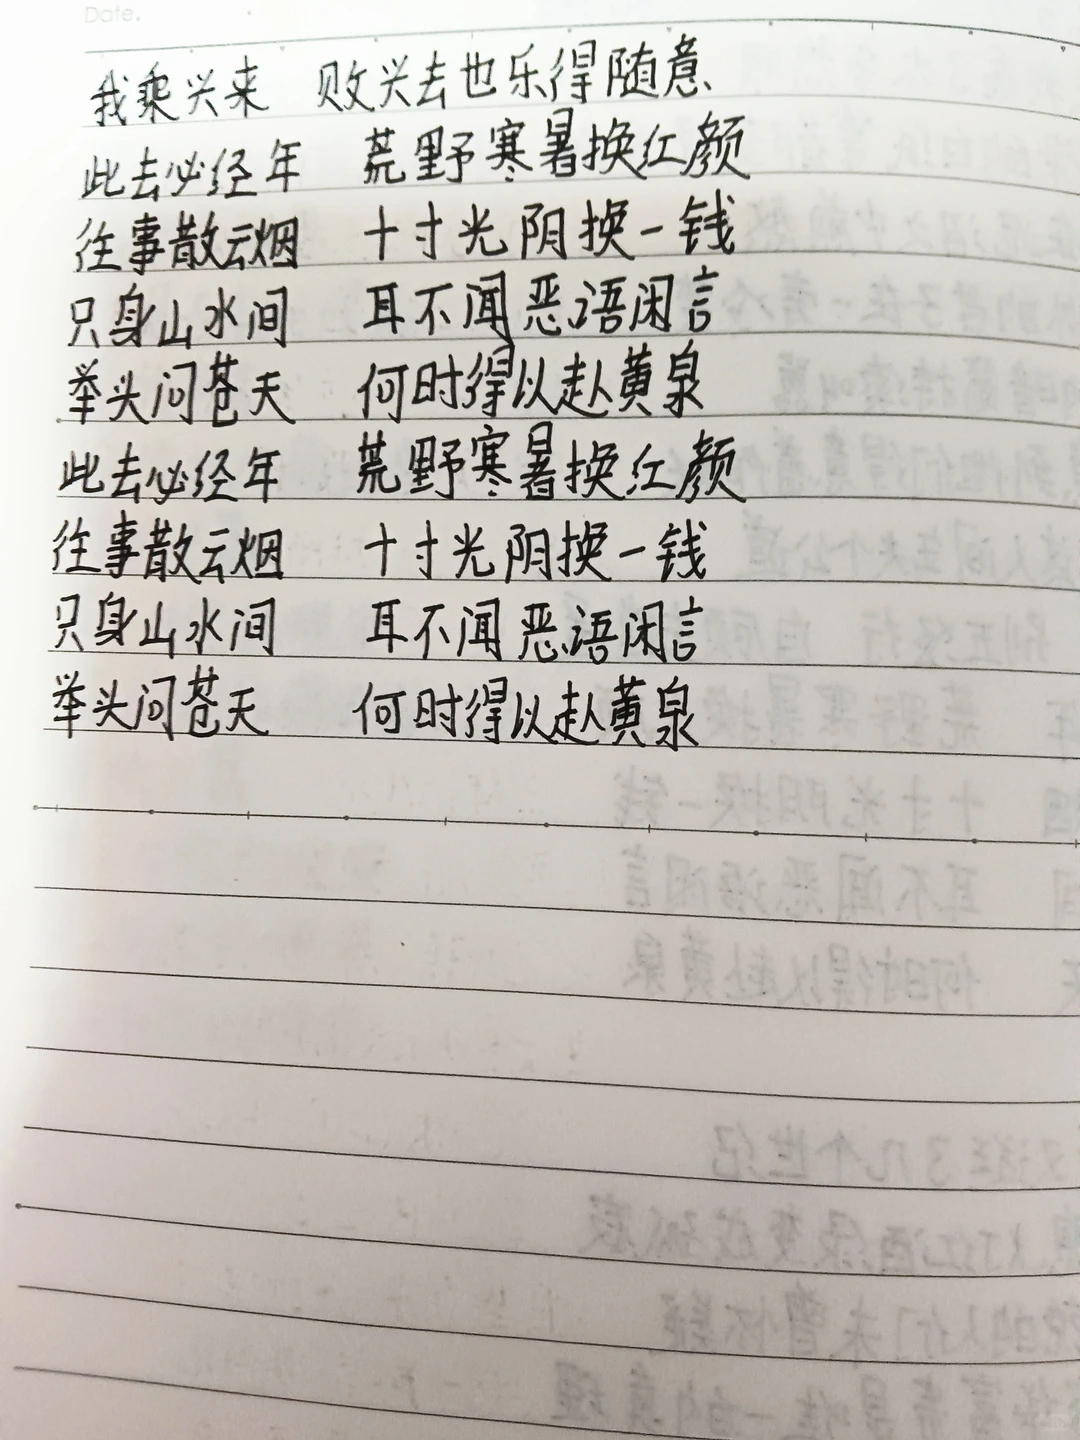 Date.
我乘兴来 败兴去也乐得随意
此去必经年 荒野寒暑换红颜
往事散云烟 十寸光阴换一钱
只身山水间 耳不闻恶语闲言
举头问苍天 何时得以赴黄泉
此去必经年 荒野寒暑换红颜
往事散云烟 十寸光阴换一钱
只身山水间 耳不闻恶语闲言
举头问苍天 何时得以赴黄泉